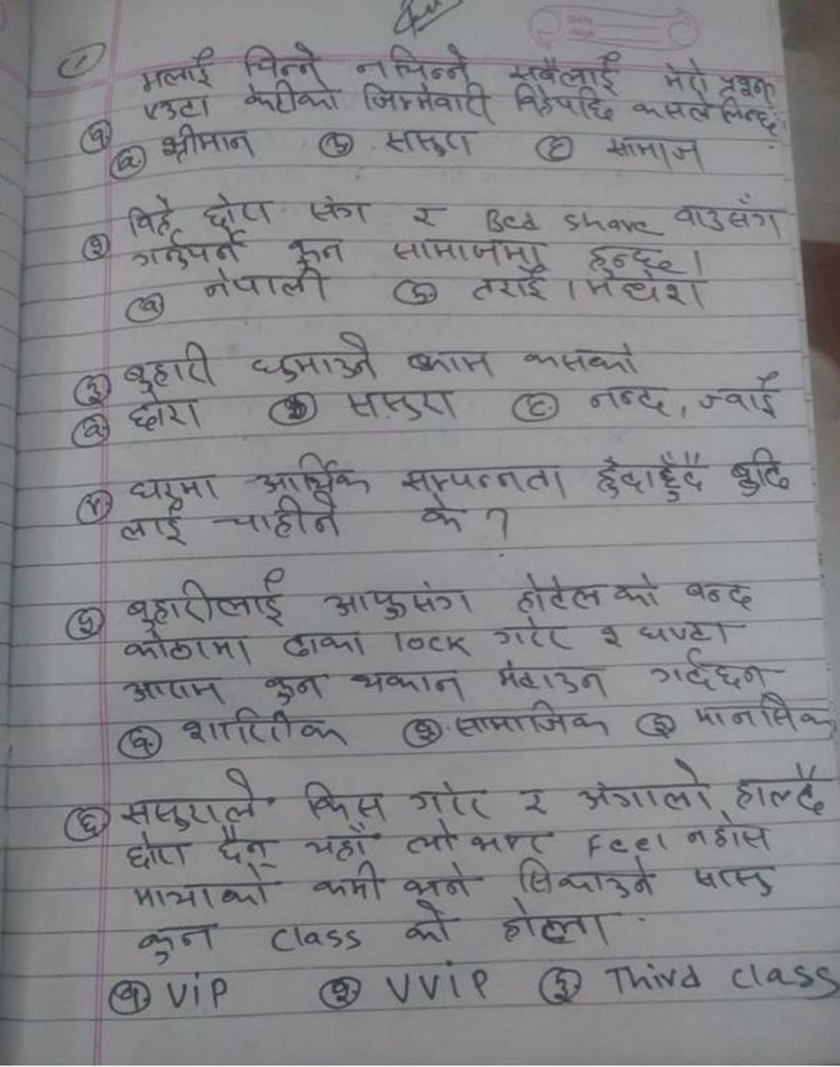 १ मलाई चिन्ने नचिन्ने सबैलाई मेरो प्रश्न
एउटा केटीको जिम्मेवारी विहेपछि कसले लिन्छ।
(a) श्रीमान (b) ससुरा (c) सामाज
२ विहे छोरा संग र Bed share बाउसंग
गर्नुपर्ने कुन सामाजमा हुन्छ।
(a) नेपाली (b) तराई । मधेश।
३ बुहारी घुमाउने काम कसको
(a) छोरा (b) ससुरा (c) नन्द, ज्वाई
४ घरमा आर्थिक सम्पन्नता हुँदाहुँदै बुद्दि
लाई चाहीने के ?
५ बुहारीलाई आफुसंग होटेलको बन्द
कोठामा ढोका lock गरेर २ घण्टा
आराम कुन थकान मेटाउन गर्दछन
१ शारिरीक २ सामाजिक ३ मानसिक
६ ससुराले किस गरेर र अंगालो हाल्दै
छोरा छैन यहाँ त्यो भएर Feel नहोस
मायाको कमी भने सिकाउने सासु
कुन class को होला.
१ ViP २ VViP ३ Third class